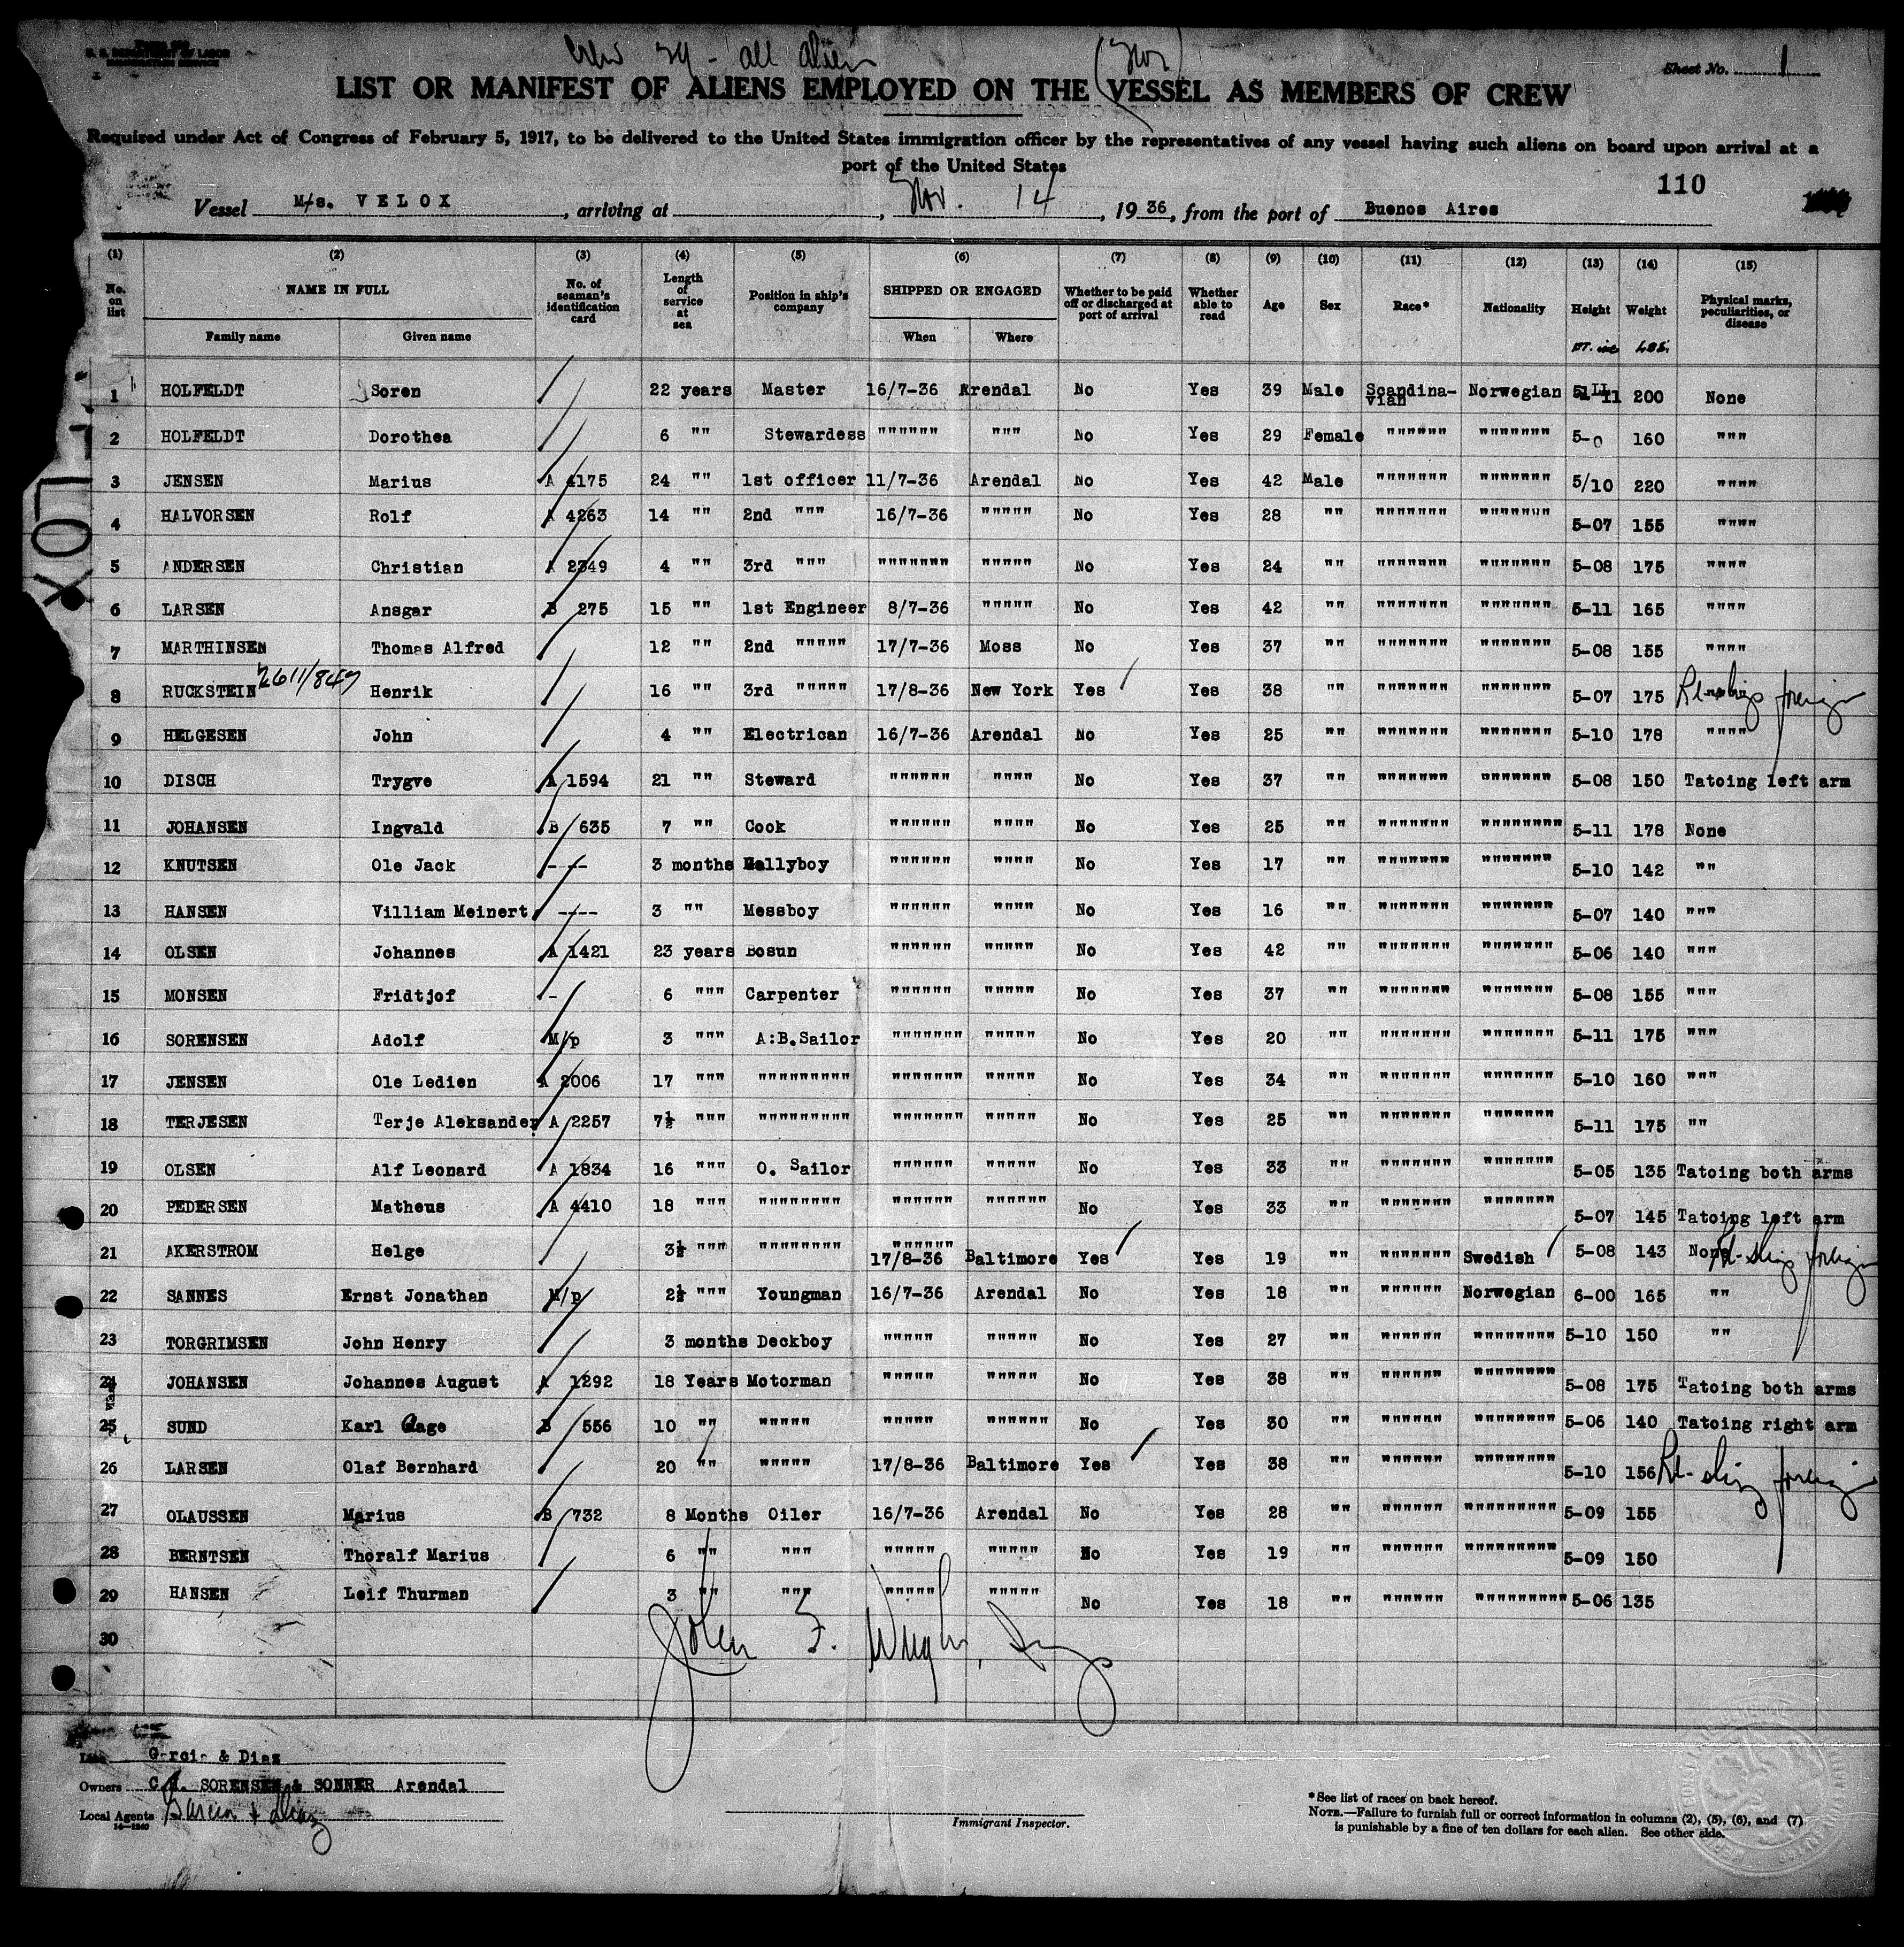 Form 689
U. S. DEPARTMENT OF LABOR
IMMIGRATION SERVICE
Crew 29 - all alien (Nor)
Sheet No. 1
LIST OR MANIFEST OF ALIENS EMPLOYED ON THE VESSEL AS MEMBERS OF CREW
Required under Act of Congress of February 5, 1917, to be delivered to the United States immigration officer by the representatives of any vessel having such aliens on board upon arrival at a
port of the United States
110
Vessel M/s. VELOX, arriving at , Nov. 14, 1936, from the port of Buenos Aires
(1) (2) (3) (4) (5) (6) (7) (8) (9) (10) (11) (12) (13) (14) (15)
No. on list NAME IN FULL No. of seaman's identification card Length of service at sea Position in ship's company SHIPPED OR ENGAGED Whether to be paid off or discharged at port of arrival Whether able to read Age Sex Race* Nationality Height Weight Physical marks, peculiarities, or disease
Family name Given name When Where FT. ins LBS.
1 HOLFELDT Soren 22 years Master 16/7-36 Arendal No Yes 39 Male Scandina-vian Norwegian 5 11 200 None
2 HOLFELDT Dorothea 6 "" Stewardess """""" """ No Yes 29 Female """""" """"""" 5-0 160 """
3 JENSEN Marius A 4175 24 "" 1st officer 11/7-36 Arendal No Yes 42 Male """"""" """"""" 5/10 220 """"
4 HALVORSEN Rolf A 4263 14 "" 2nd """ 16/7-36 """"" No Yes 28 "" """"""" """"""" 5-07 155 """"
5 ANDERSEN Christian A 2349 4 "" 3rd """ """"""" """"" No Yes 24 "" """"""" """"""" 5-08 175 """"
6 LARSEN Ansgar B 275 15 "" 1st Engineer 8/7-36 """"" No Yes 42 "" """"""" """"""" 5-11 165 """"
7 MARTHINSEN Thomas Alfred 12 "" 2nd """"" 17/7-36 Moss No Yes 37 "" """"""" """"""" 5-08 155 """"
8 RUCKSTEIN 2611/847 Henrik 16 "" 3rd """"" 17/8-36 New York Yes Yes 38 "" """"""" """"""" 5-07 175 Re-ship foreign
9 HELGESEN John 4 "" Electrican 16/7-36 Arendal No Yes 25 "" """"""" """"""" 5-10 178 """"
10 DISCH Trygve A 1594 21 "" Steward """""" """" No Yes 37 "" """"""" """"""" 5-08 150 Tatoing left arm
11 JOHANSEN Ingvald B 635 7 "" Cook """""" """" No Yes 25 "" """"""" """""""" 5-11 178 None
12 KNUTSEN Ole Jack --- 3 months Gallyboy """""" """" No Yes 17 "" """"""" """"""" 5-10 142 ""
13 HANSEN Villiam Meinert ---- 3 "" Messboy """""" """" No Yes 16 "" """"""" """"""" 5-07 140 """
14 OLSEN Johannes A 1421 23 years Bosun """""" """"" No Yes 42 "" """"""" """"""" 5-06 140 """
15 MONSEN Fridtjof - 6 """ Carpenter """""" """"" No Yes 37 "" """"""" """"""" 5-08 155 """
16 SORENSEN Adolf M/p 3 """ A:B.Sailor """"""" """"" No Yes 20 "" """"""" """"""" 5-11 175 """
17 JENSEN Ole Ledien A 2006 17 """ """"""""" """"""" """"" No Yes 34 "" """"""" """"""" 5-10 160 """
18 TERJESEN Terje Aleksander A 2257 7½ """ """"""""" """"""" """"" No Yes 25 "" """"""" """"""" 5-11 175 ""
19 OLSEN Alf Leonard A 1834 16 """ O. Sailor """""" """"" No Yes 33 "" """"""" """"""" 5-05 135 Tatoing both arms
20 PEDERSEN Matheus A 4410 18 """ """""""" """""" """""" No Yes 33 "" """"""" """"""" 5-07 145 Tatoing left arm
21 AKERSTROM Helge 3½ """ """""""" """""" 17/8-36 Baltimore Yes Yes 19 "" """"""" Swedish 5-08 143 None Re-ship foreign
22 SANNES Ernst Jonathan M/p 2½ """ Youngman 16/7-36 Arendal No Yes 18 "" """""" Norwegian 6-00 165 ""
23 TORGRIMSEN John Henry 3 months Deckboy """"" """"" No Yes 27 "" """""" """""""" 5-10 150 ""
24 JOHANSEN Johannes August A 1292 18 Years Motorman """"" """"" No Yes 38 "" """""" """""""" 5-08 175 Tatoing both arms
25 SUND Karl Aage B 556 10 "" """"" """"" """""" No Yes 30 "" """""" """""""" 5-06 140 Tatoing right arm
26 LARSEN Olaf Bernhard 20 "" """"" 17/8-36 Baltimore Yes Yes 38 "" """""" """""""" 5-10 156 Re-ship foreign
27 OLAUSSEN Marius B 732 8 Months Oiler 16/7-36 Arendal No Yes 28 "" """""" """"""""" 5-09 155
28 BERNTSEN Thoralf Marius 6 "" """ """"" """"" No Yes 19 "" """""" """"""""" 5-09 150
29 HANSEN Leif Thurman 3 "" """ """"" """"" No Yes 18 "" """""" """"""""" 5-06 135
30
VELOX
John F. Wright,
Line Garcia & Diaz
Owners SORENSEN & SONNER Arendal
Local Agents Garcia & Diaz
14-1240
Immigrant Inspector.
*See list of races on back hereof.
NOTE.—Failure to furnish full or correct information in columns (2), (5), (6), and (7)
is punishable by a fine of ten dollars for each alien. See other side.